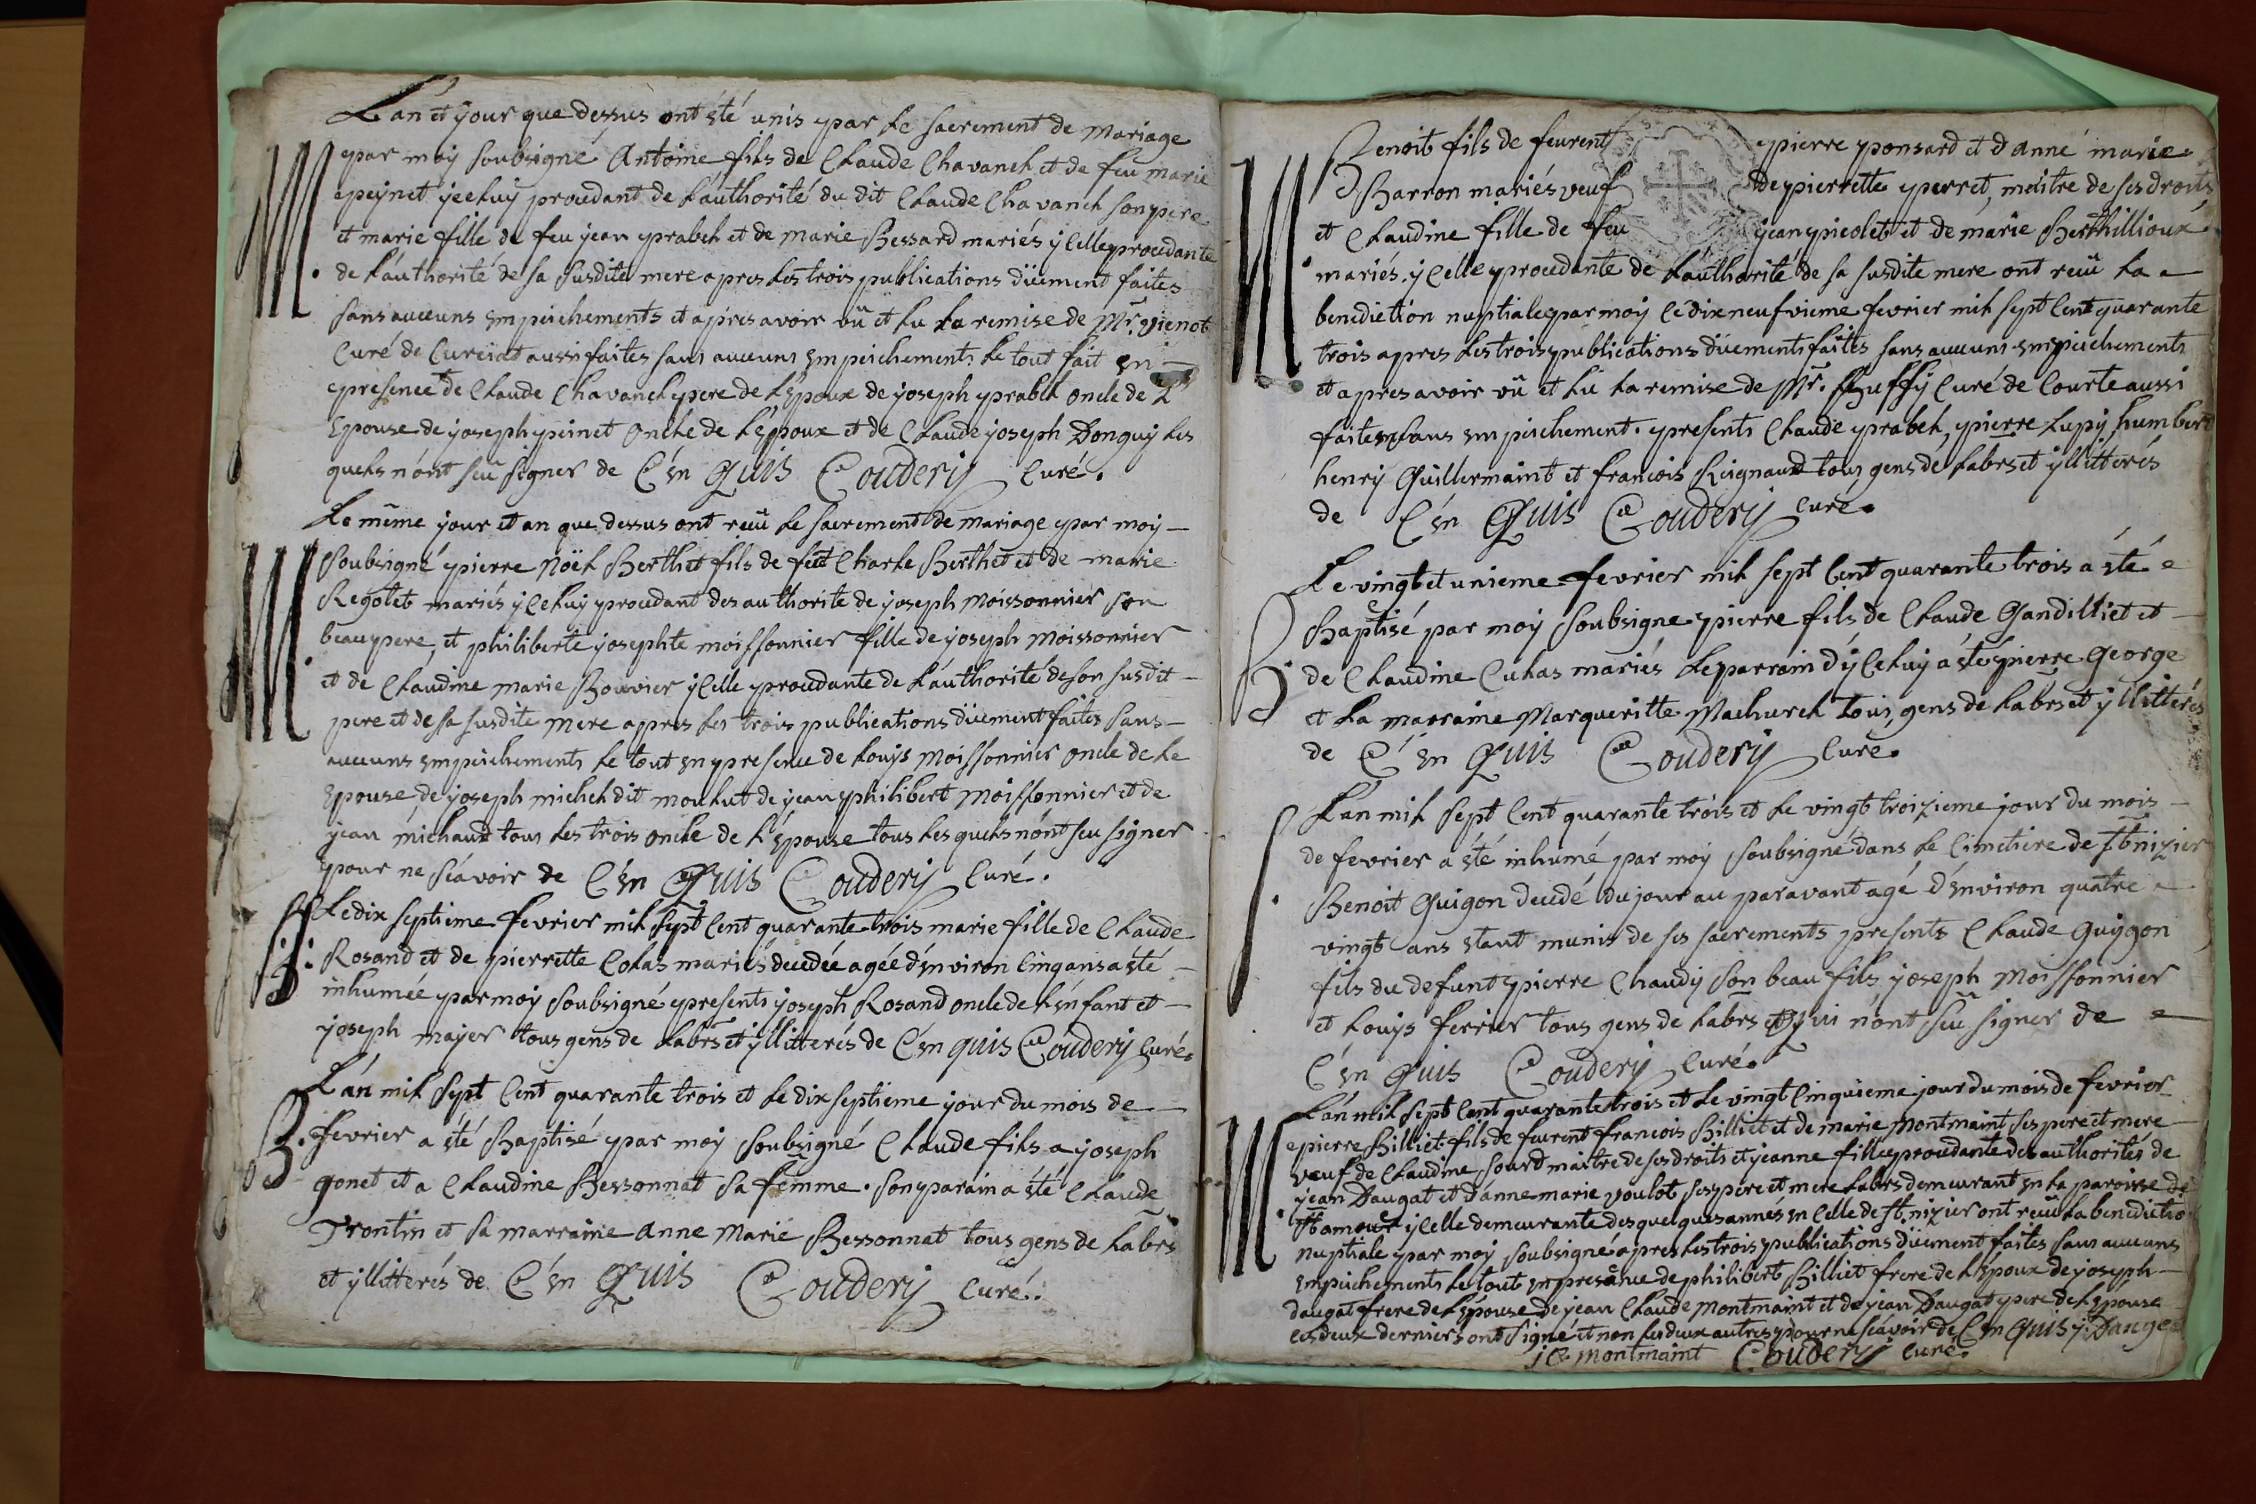 L'an et jour que dessus ont été unis par le sacrement de mariage
M. par moy soubsigné Antoine fils de Claude Chavanel et de feu marie
peynet yceluy procedant de l'authorité du dit Claude Chavanel son pere
et marie fille de feu jean prabel et de marie Bessard mariés ycelle procedante
de l'authorité de sa susdite mere apres les trois publications düement faites
sans aucuns empeichements et apres avoir vû et lu la remise de Mr. vienot
Curé de Curciat aussi faites sans aucuns empeichements le tout fait en
presence de Claude Chavanel pere de l'Epoux de joseph prabel oncle de L'
Epouse de joseph peinet oncle de l'époux et de Claude joseph Donguy les
quels n'ont sçu signer de C'én quis Coudery Curé.
Le même jour et an que dessus ont reçû le sacrement de mariage par moy
M. soubsigné pierre Noël Berthet fils de feu Charle Berthet et de marie
Regolet mariés yceluy procedant des authorité de joseph Moissonnier son
beaupere, et philiberte josephte moissonnier fille de joseph moissonnier
et de Claudine marie Bouvier ycelle procedante de l'authorité de son susdit
pere et de sa susdite mere apres les trois publications düement faites sans
aucuns empeichements le tout en presence de Louys Moissonnier oncle de Le
Epouse, de joseph michel dit moulut de jean philibert Moissonnier et de
jean michaud tous les trois oncle de L'Epouse tous lesquels n'ont seu signer
pour ne sçavoir de C'én Quis Coudery Curé.
Le dix septieme fevrier mil sept Cent quarante trois marie fille de Claude
Rosand et de pierrette Colas mariés decedée agée d'environ Cinq ans a été
inhumée par moy soubsigné presents joseph Rosand oncle de L'énfant et
joseph mayer tous gens de labrs et yllitterés de C'én quis Coudery Curé.
L'án mil sept Cent quarante trois et Le dix septieme jour du mois de
B. fevrier a été Baptisé par moy soubsigné Claude fils a joseph
gonet et a Claudine Bessonnat sa femme. son parain a été Claude
Trontin et sa marraine Anne Marie Bessonnat tous gens de Labrs
et yllitterés de C'én Quis Coudery Curé.
Benoit fils de feurent pierre ponsard et d'anné marie
M. Barron mariés veuf de pierrette perret, maitre de ses droits
et Claudine fille de feu jean picolet et de marie Berthillioux
mariés. ycelle procedante de l'authorité de sa susdite mere ont reçû la
benediction nuptiale par moy le dix neufvieme fevrier mil sept Cent quarante
trois apres les trois publications düements faites sans aucuns empeichements
et apres avoir vû et lü la remise de Mr. Buffy Curé de Courte aussi
faites sans empeichement. presents Claude prabel, pierre Lupy, humbert
henry Guillermaint et francois Reignaud tous gens de Labrs et yllitterés
de C'én Quis Coudery Curé.
Le vingt et unieme fevrier mil sept Cent quarante trois á été
B. Baptisé par moy soubsigne pierre fils de Claude Gandilliet et
de Claudine Culas mariés Le parrain d'yceluy a été pierre George
et La marraine Margueritte Machurel Tous gens de Labrs et yllitterés
de C'én Quis Coudery Curé.
L'an mil sept Cent quarante trois et Le vingt troizieme jour du mois
de fevrier a été inhumé par moy soubsigné dans le Cimetiere de St. nizier
Benoit Guigon decedé du jour au paravant agé d'énviron quatre
vingt ans étant munis de ses sacrements presents Claude guygon
fils du defunt pierre Chaudy son beau fils joseph Moissonnier
et Louys ferrier tous gens de Labrs qui n'ont sçu signer de
C'én Quis Coudery Curé.
L'án mil sept Cent quarante trois et Le vingt Cinquieme jour du mois de fevrier
M. pierre Billiet fils de feurent francois Billiet et de marie Montmaint ses pere et mere
veuf de Claudine sourd maitre de ses droits et jeanne fille procedante des authorités de
jean Daugat et d'anne marie voulot ses pere et mere Labrs demeurant en La paroisse de
St. amour ycelle demeurante des quelques années en Celle de St. nizier ont reçû La benedictio
nuptiale par moy soubsigné apres Les trois publications düement faites sans aucuns
empeichements Le tout en presence de philibert Billiet frere de L'époux de joseph
daugat frere de L'épouse de jean Claude Montmaint et de jean Daugat pere de L'épouse
Les deux derniers ont signé et non Les deux autres pour ne sçavoir de C'én Quis j. Dauge
j C montmaint Coudery Curé.